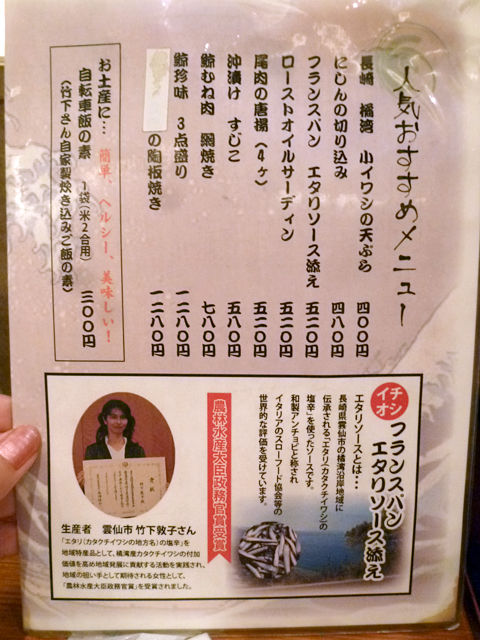 人気おすすめメニュー
長崎 橘湾 小イワシの天ぷら 四〇〇円
にしんの切り込み 四八〇円
フランスパン エタリソース添え 五二〇円
ローストオイルサーディン 五二〇円
尾肉の唐揚(4ヶ) 五二〇円
沖漬け すじこ 五八〇円
鯨むね肉 網焼き 七八〇円
鯨珍味 3点盛り 一二八〇円
の陶板焼き 一二八〇円
お土産に… 簡単、ヘルシー、美味しい!
自転車飯の素 1袋(米2合用) 三〇〇円
(竹下さん自家製炊き込みご飯の素)
イチオシ
フランスパン
エタリソース添え
エタリソースとは…
長崎県雲仙市の橘湾沿岸地域に
伝承される「エタリ(カタクチイワシ)の
塩辛」を使ったソースです。
和製アンチョビと称され
イタリアのスローフード協会等の
世界的な評価を受けています。
農林水産大臣政務官賞受賞
生産者 雲仙市 竹下敦子さん
「エタリ(カタクチイワシの地方名)の塩辛」を
地域特産品として、橘湾産カタクチイワシの付加
価値を高め地域発展に貢献する活動を実践され、
地域の担い手として期待される女性として、
「農林水産大臣政務官賞」を受賞されました。